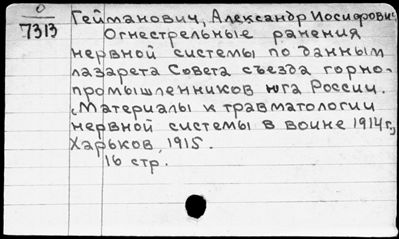 0
7313
Гейманович, Александр Иосифович
Огнестрельные ранения
нервной системы по данным
лазарета Совета съезда горно-
промышленников юга России.
„Материалы к травматологии
нервной системы в воине 1914 г.,
Харьков, 1915.
16 стр.